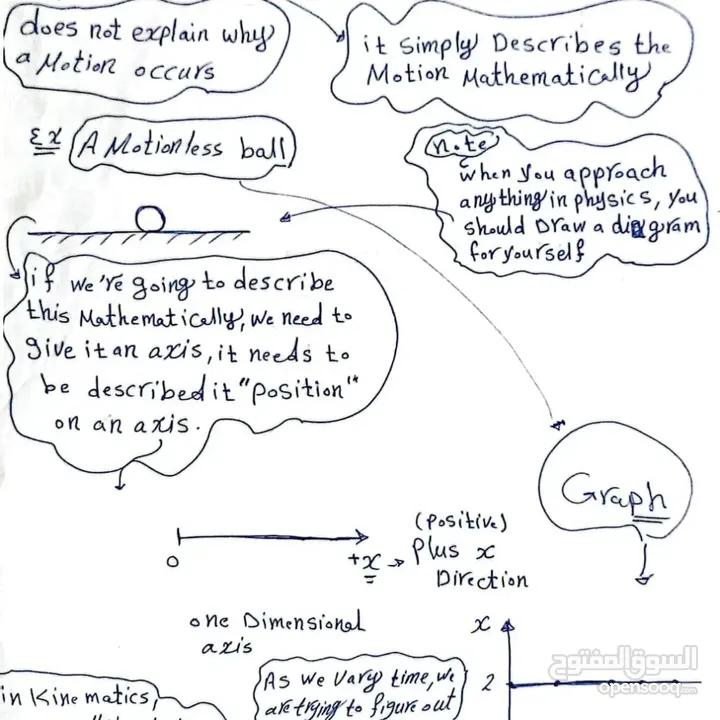 does not explain why
a Motion occurs
it simply Describes the
Motion Mathematically
Ex
A Motionless ball
note
when you approach
anything in physics, you
should Draw a diagram
for yourself
if we're going to describe
this Mathematically, we need to
give it an axis, it needs to
be described it "Position"
on an axis.
Graph
0
+x
(positive)
Plus x
Direction
one Dimensional
axis
x
2
As we vary time, we
are trying to figure out
in Kinematics,
السوق المفتوح
opensooq.com